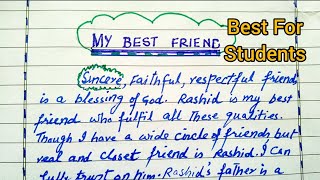 MY BEST FRIEND
Best For
Students
Sincere, Faithful, respectful friend
is a blessing of God. Rashid is my best
friend who fulfil all These qualities.
Though I have a wide circle of friends but
real and closet friend is Rashid. I Can
fully trust on him. Rashid's father is a